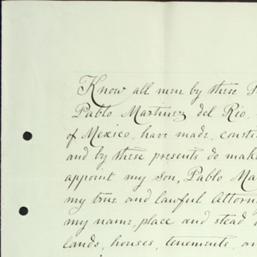 Know all men by these
Pablo Martinez del Rio,
of Mexico, have made, const
and by these presents do mak
appoint my son, Pablo Ma
my true and lawful Attorn
my name, place and stead
lands, houses, tenements, an